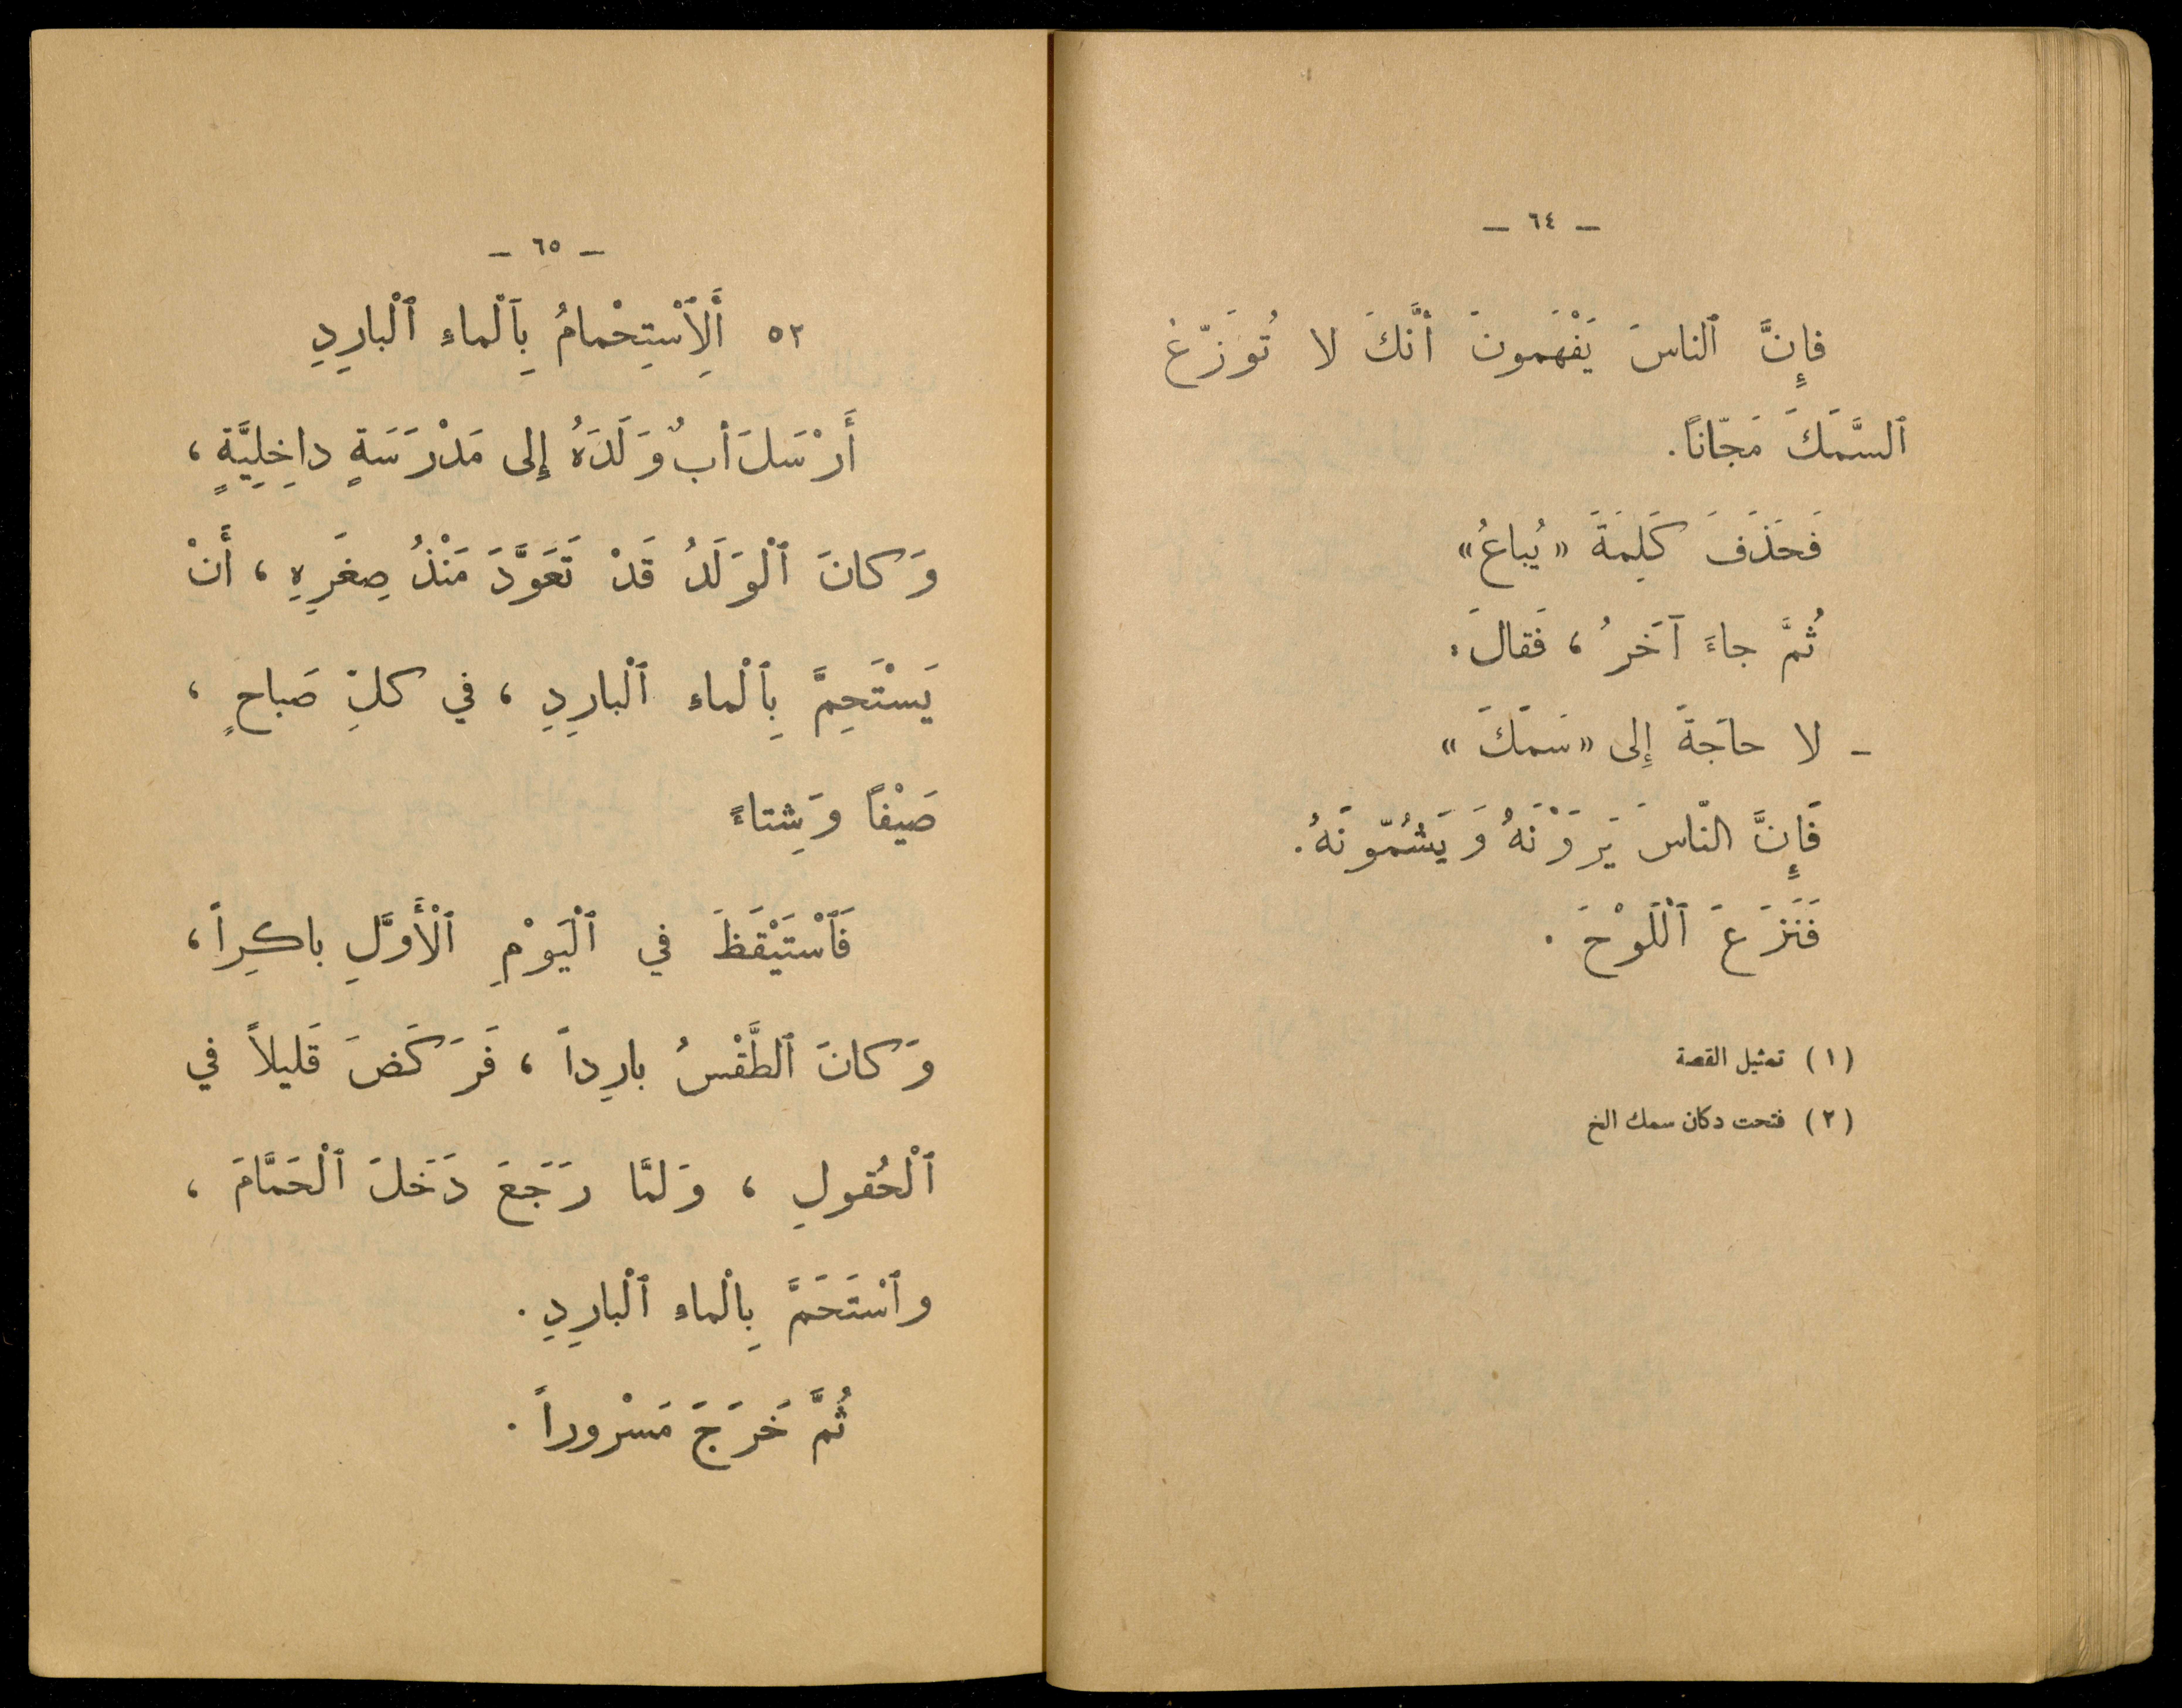 — ٦٤ —
فإِنَّ ٱلناسَ يَفْهَمونَ أنَّكَ لا تُوَزّعُ
ٱلسَّمَكَ مَجّاناً.
فَحَذَفَ كَلِمَةَ «يُباعُ»
ثُمَّ جاءَ آخَرُ ، فَقالَ :
- لا حاجَةَ إِلى «سَمَكَ»
فَإِنَّ النّاسَ يَرَوْنَهُ وَيَشُمّونَهُ.
فَنَزَعَ ٱللَوْحَ .
(١) تمثيل القصة
(٢) فتحت دكان سمك الخ
— ٦٥ —
٥٢ أَلِٱسْتِحْمامُ بِٱلْماءِ ٱلْبارِدِ
أَرْسَلَ أبٌ وَلَدَهُ إِلى مَدْرَسَةٍ داخِلِيَّةٍ ،
وَكانَ ٱلْوَلَدُ قَدْ تَعَوَّدَ مَنْذُ صِغَرِهِ ، أَنْ
يَسْتَحِمَّ بِٱلْماءِ ٱلْبارِدِ ، في كلِّ صَباحٍ ،
صَيْفاً وَشِتاءً
فَٱسْتَيْقَظَ في ٱلْيَوْمِ ٱلْأَوَّلِ باكِراً ،
وَكانَ ٱلطَّقْسُ بارِداً ، فَرَكَضَ قَليلاً في
ٱلْحُقولِ ، وَلمَّا رَجَعَ دَخَلَ ٱلْحَمَّامَ ،
وٱسْتَحَمَّ بِالْماءِ ٱلْبارِدِ .
ثُمَّ خَرَجَ مَسْروراً .